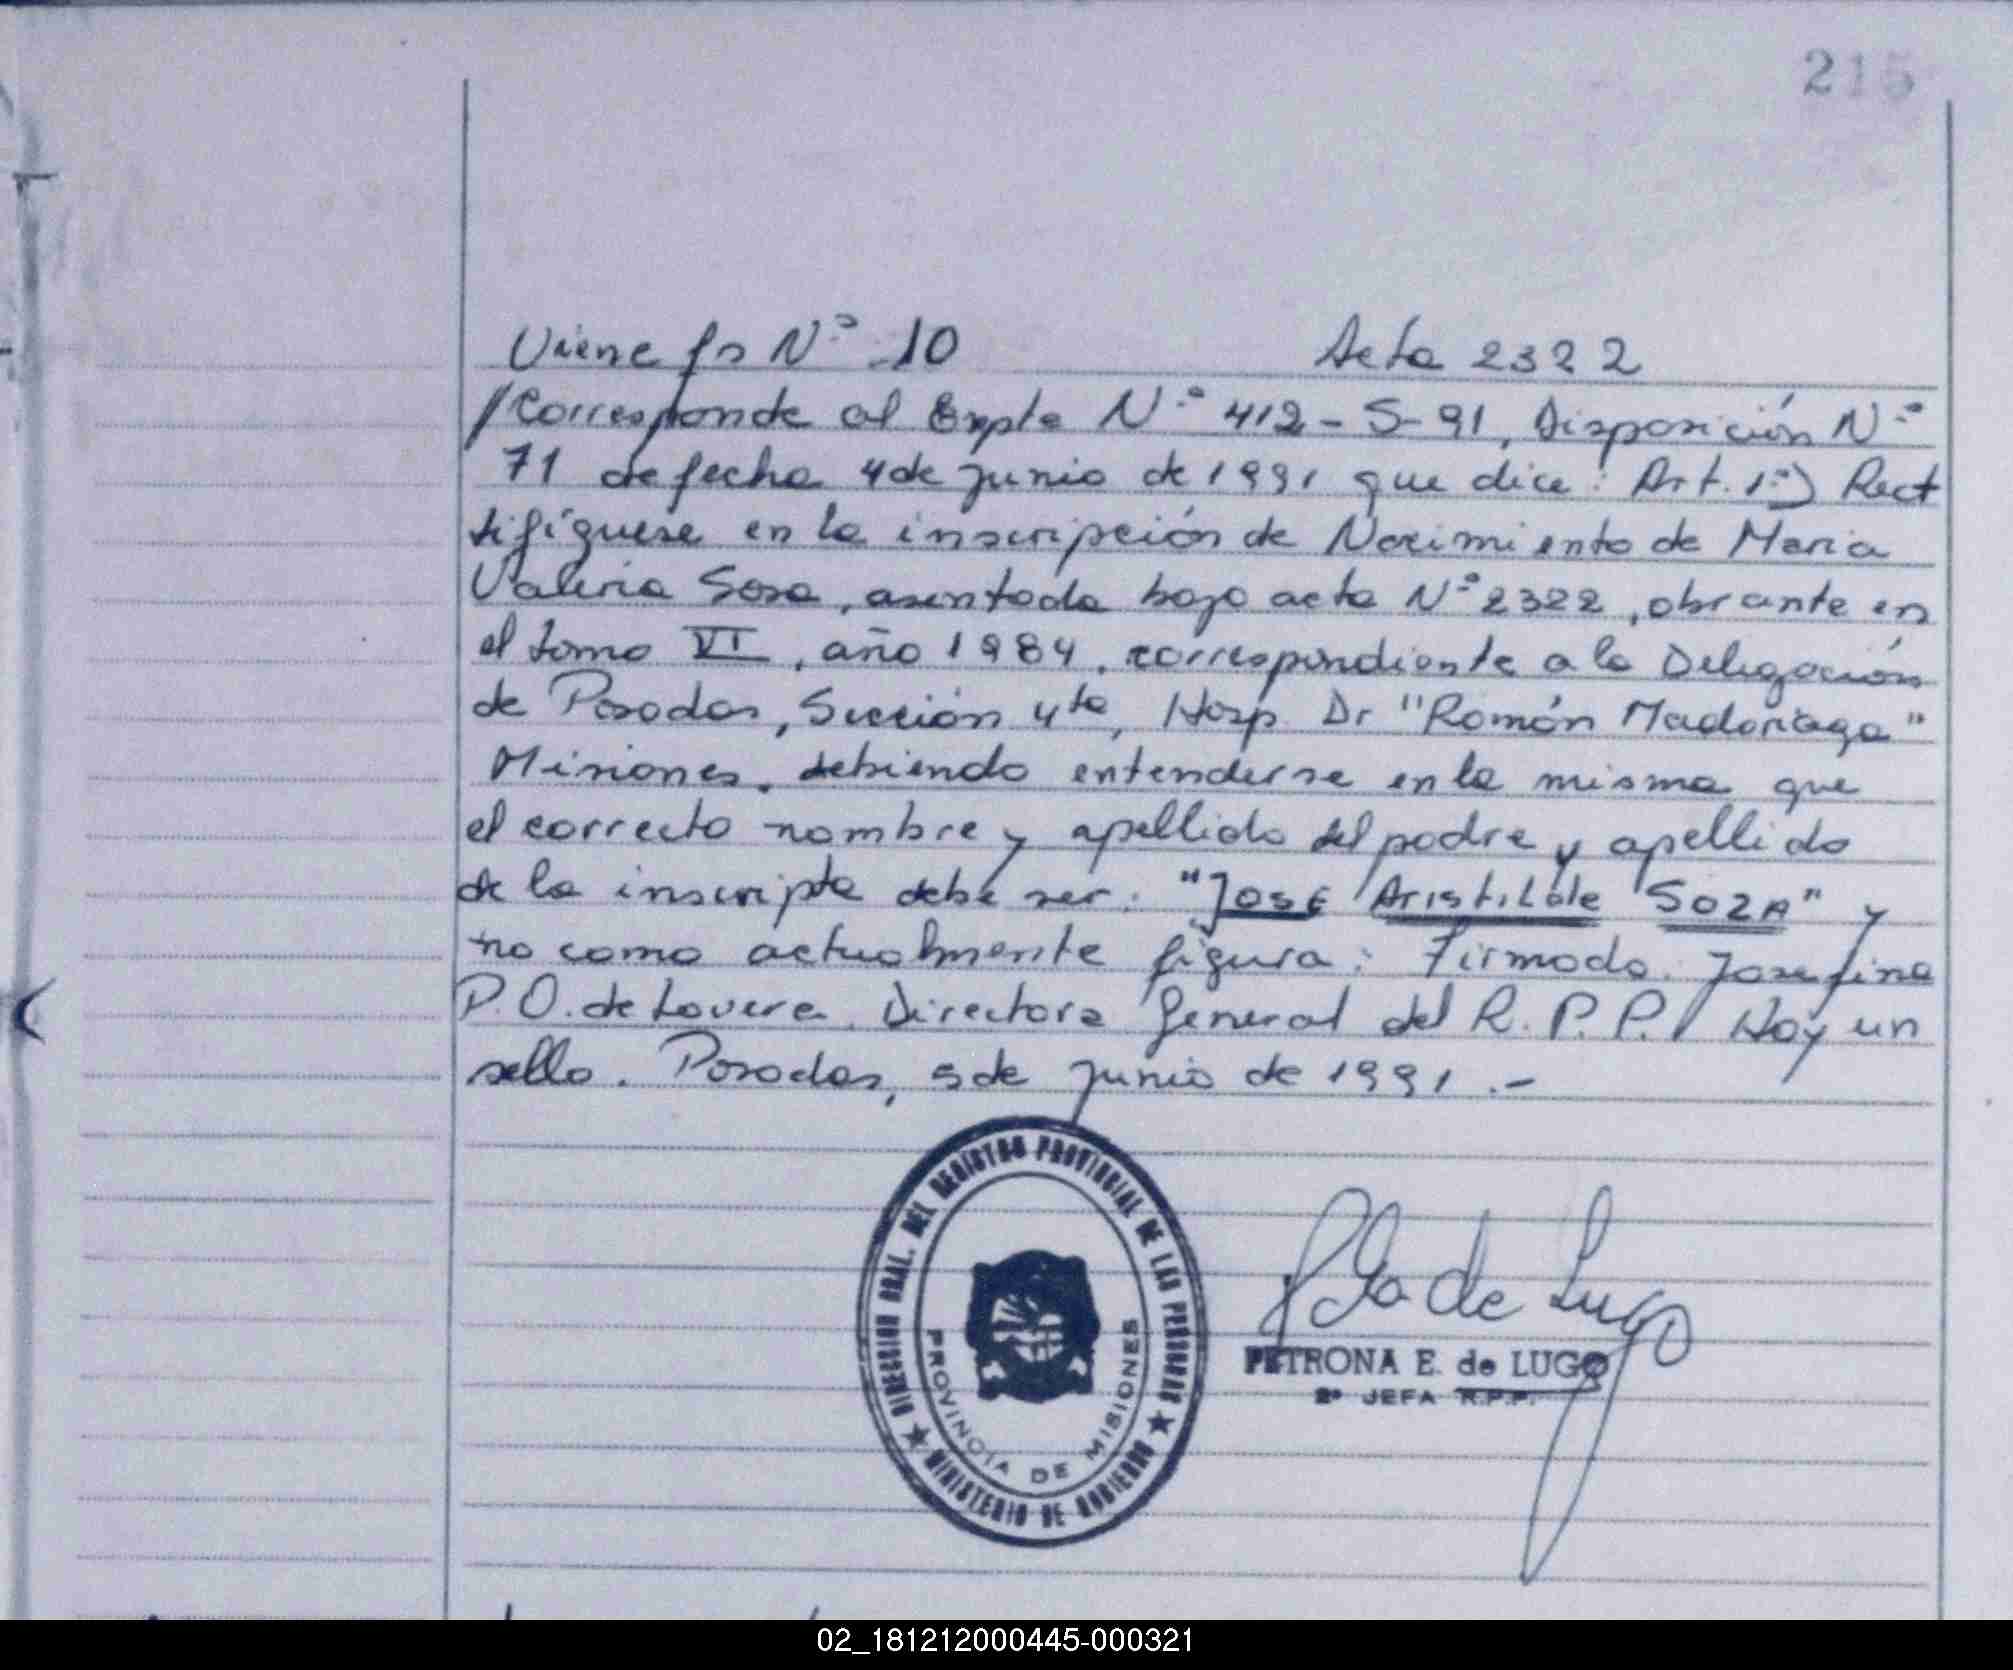 215
Viene fs N.º 10 Acta 2322
/Corresponde al Expte N.º 412-S-91, Disposición N.º
71 de fecha 4 de junio de 1991 que dice: Art. 1º) Rect
tifíquese en la inscripción de Nacimiento de Maria
Valeria Sosa, asentada bajo acta N.º 2322, obrante en
el tomo VI, año 1984, correspondiente a la Delegación
de Posadas, Sección 4ta, Hosp. Dr "Ramón Madariaga"
Misiones, debiendo entenderse en la misma que
el correcto nombre y apellido del padre y apellido
de la inscripta debe ser: "José Aristilde SOZA" y
no como actualmente figura: Firmado. Josefina
P. O. de Lovera. Directora General del R. P. P. Hay un
sello. Posadas, 5 de junio de 1991.-
DIRECCION GRAL. DEL REGISTRO PROVINCIAL DE LAS PERSONAS
PROVINCIA DE MISIONES
MINISTERIO DE GOBIERNO
de Lugo
PETRONA E. de LUGO
2ª JEFA R.P.P.
02_181212000445-000321